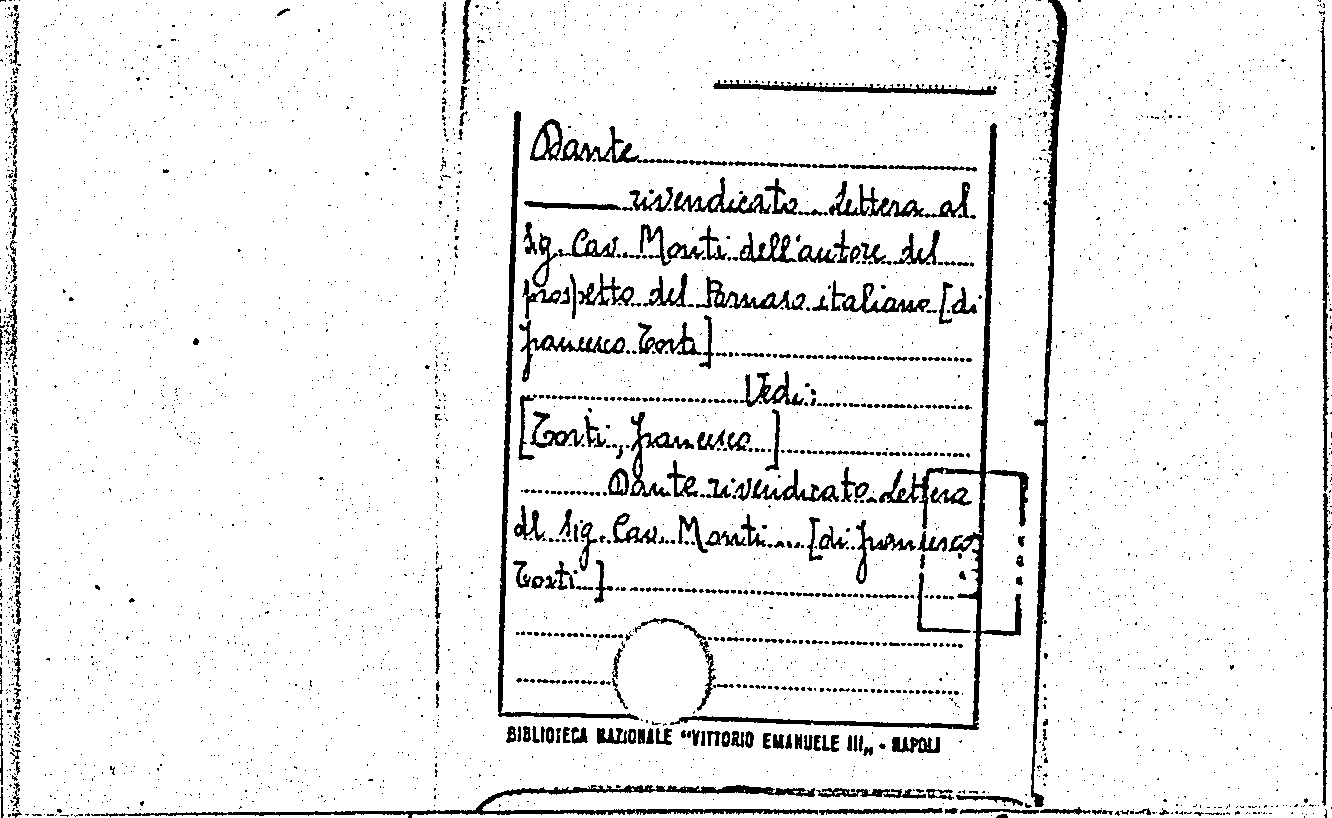 Dante
——— rivendicato. Lettera al
Sig. Cav. Monti dell'autore del
prospetto del Parnaso italiano [di
Francesco Torti]
Vedi:
[Torti, Francesco]
Dante rivendicato. Lettera
al Sig. Cav. Monti... [di Francesco
Torti]
BIBLIOTECA NAZIONALE "VITTORIO EMANUELE III„ - NAPOLI